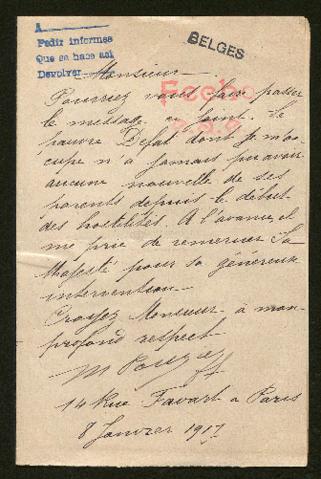 A
Pedir informes
Que se hace así
Devolver
BELGES
Fecho
Monsieur
Pourriez vous faire passer
le message ci joint. Le
pauvre Defat dont je m'oc
cupe n'a jamais pu avoir
aucune nouvelle de ses
parents depuis le début
des hostilités. A l'avance, il
me prie de remercier Sa
Majesté pour sa généreuse
intervention
Croyez Monsieur à mon
profond respect
M
14 Rue Favart à Paris
8 Janvier 1917